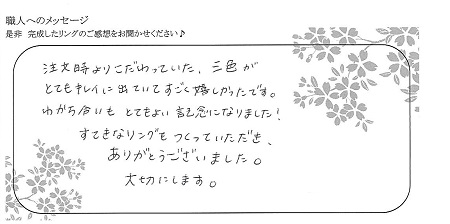 職人へのメッセージ
是非 完成したリングのご感想をお聞かせください♪
注文時よりこだわっていた、三色が
とてもキレイに出ていてすごく嬉しかったです。
わかち合いも とてもよい記念になりました!
すてきなリングをつくっていただき、
ありがとうございました。
大切にします。